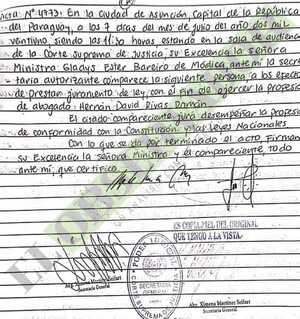 Acta N° 4773: En la Ciudad de Asunción, capital de la República
del Paraguay, a los 7 días del mes de julio del año dos mil
veintiuno, siendo las 11:40 horas estando en la sala de audiencia
de la Corte Suprema de Justicia, su Excelencia la señora
Ministra Gladys Ester Bareiro de Módica, ante mí la secre-
taria autorizante comparece la siguiente persona, a los efectos
de prestar juramento de ley, con el fin de ejercer la profesión
de abogado: Hernán David Rivas Román
El citado compareciente jura desempeñar la profesión
de conformidad con la Constitución y las Leyes Nacionales
Con lo que se da por terminado el acto, Firman
su Excelencia la señora Ministra y el compareciente todo
ante mí, que certifico.
ES COPIA FIEL DEL ORIGINAL
QUE TENGO A LA VISTA.
Abg. Ximena Martínez Seifart
Secretaria General
PODER
SECRETARIA
GENERAL
CORTE SUPREMA DE JUSTICIA
Abg. Ximena Martínez Seifart
Secretaria General